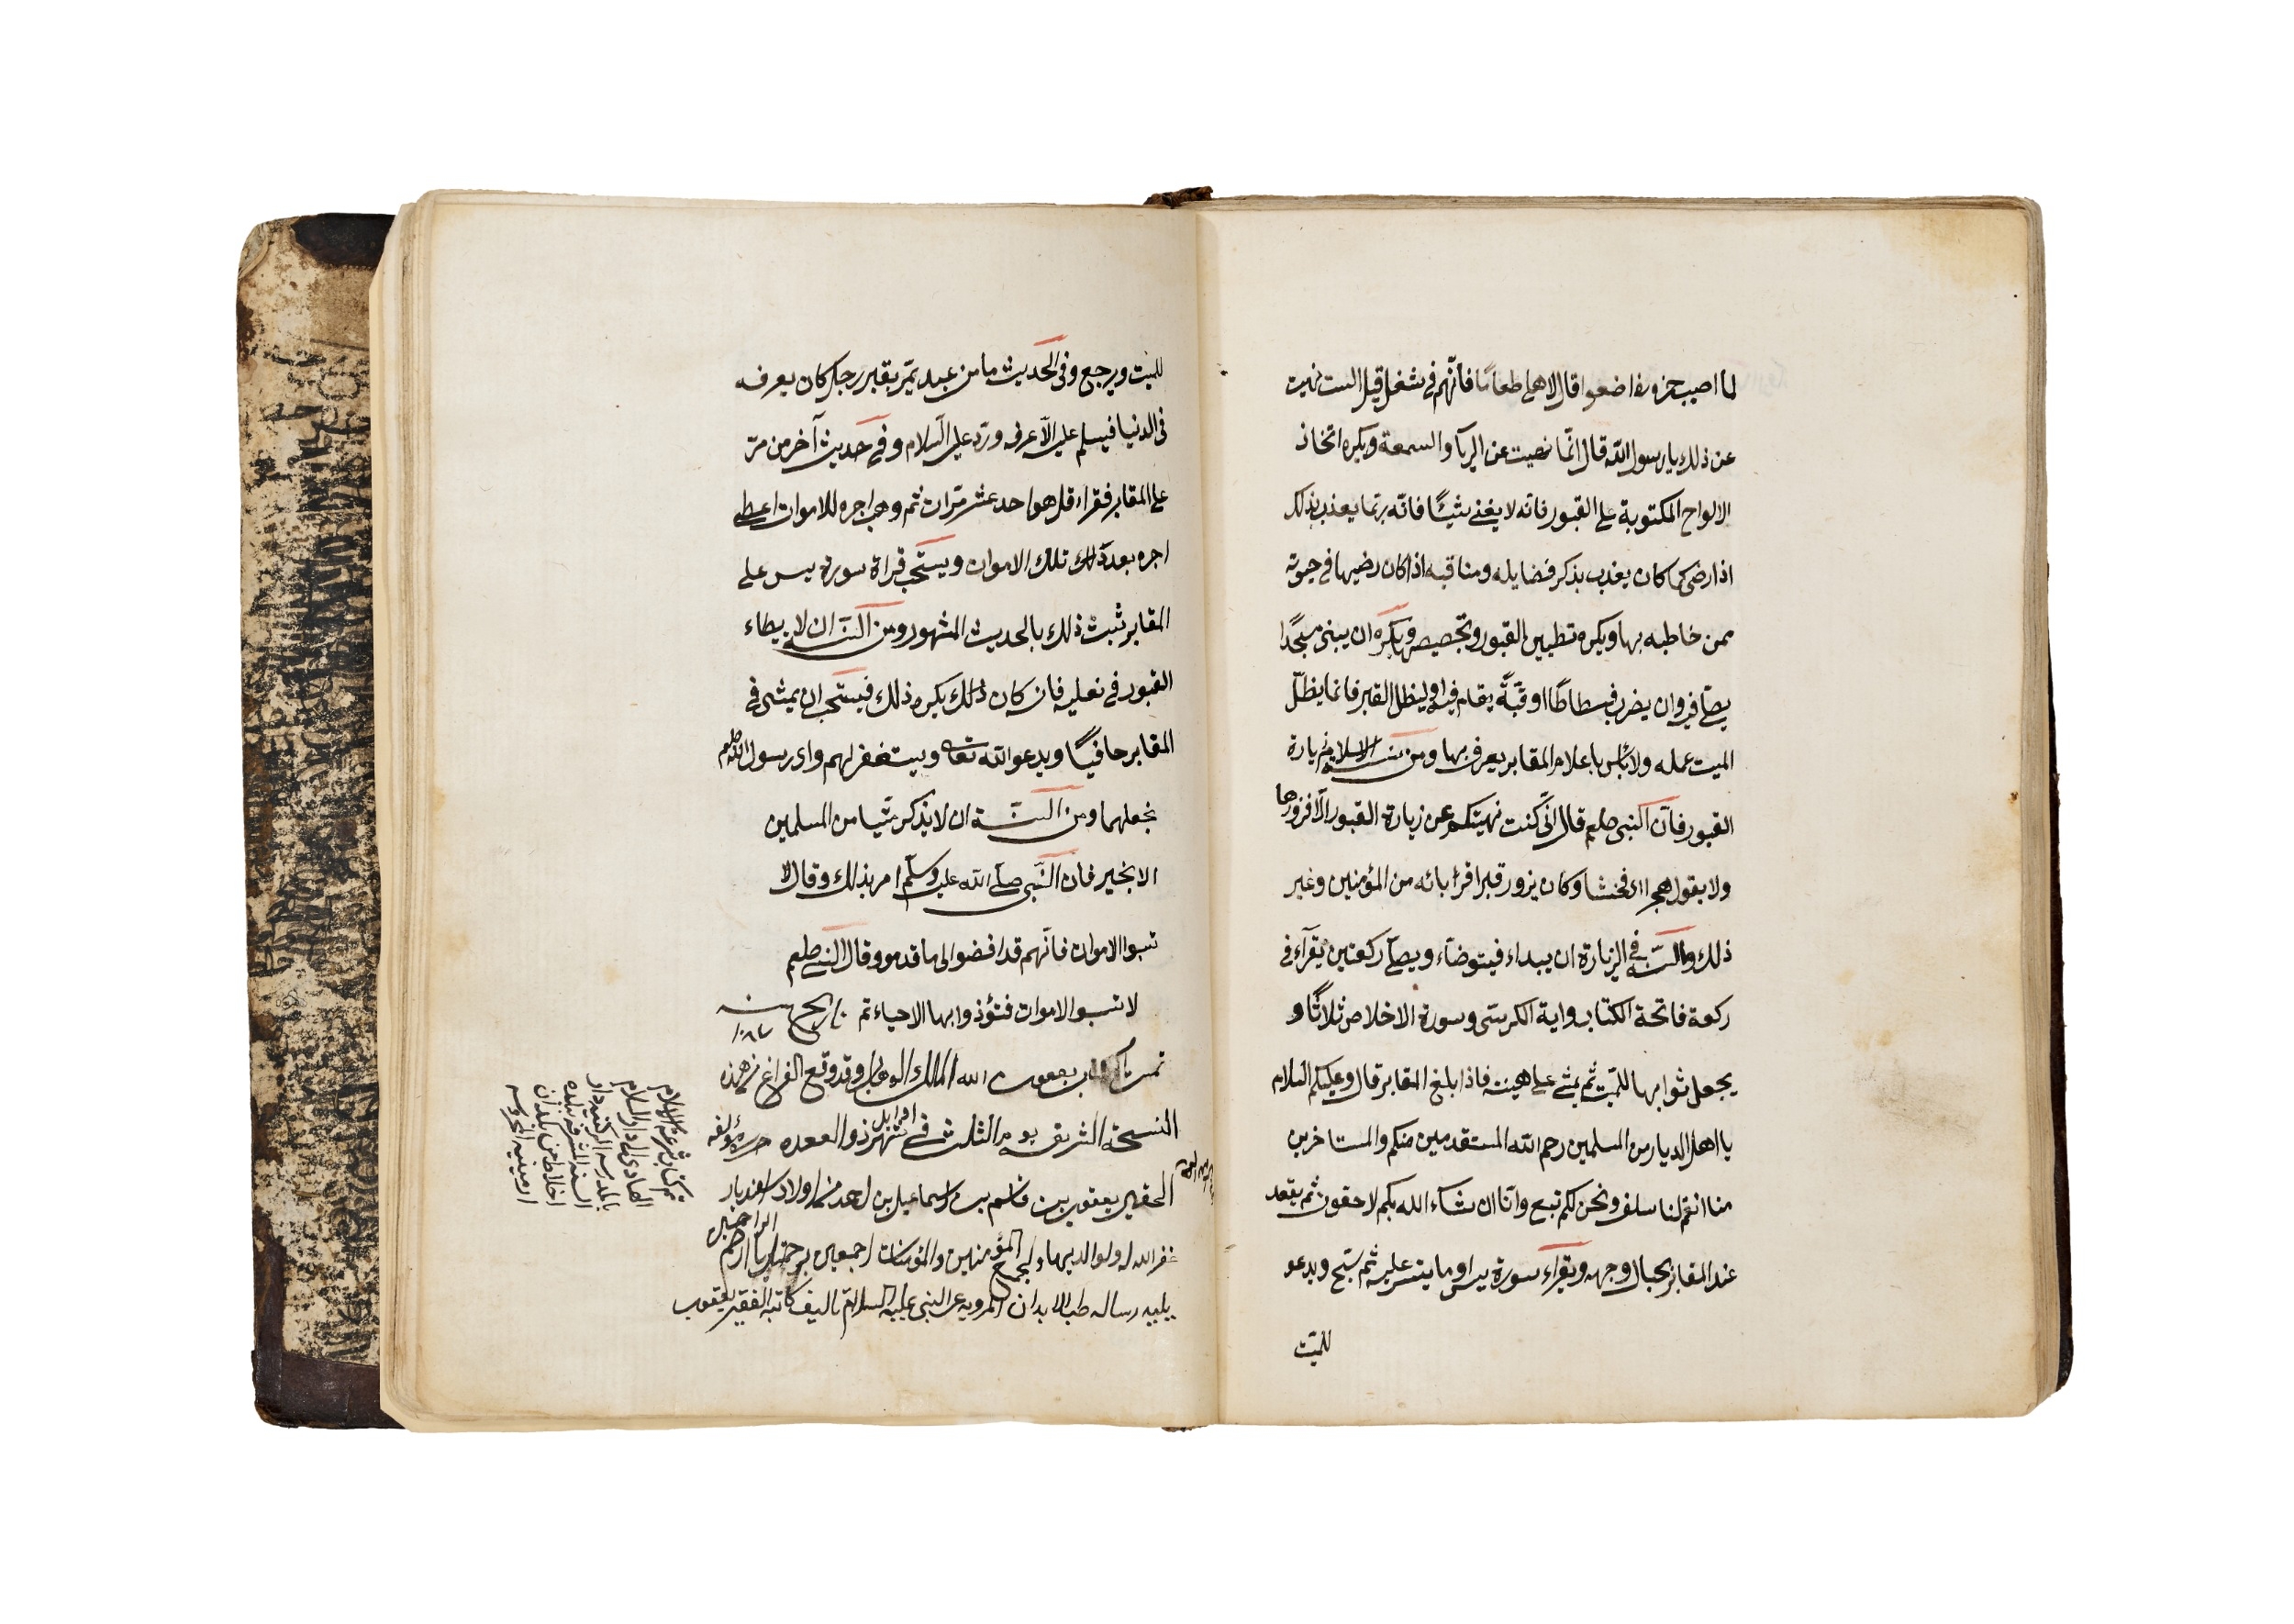 لما اصيب حمزه رضا ضعوا قال لاهلى طعامًا فانّهم فى شغل قيل الست نهيت
عن ذلك يا رسول الله قال انّما نهيت عن الريآ والسمعة ويكره اتخاذ
الالواح المكتوبة على القبور فانه لا يغنى شيئًا فانّه ربّما يعذب بذلك
اذا رضى كما كان يعذب بذكر فضايله ومناقبه اذا كان رضيها فى حيوته
ممن خاطبه بها ويكره تطيين القبور وتجصيصها ويكره ان يبنى مسجدًا
يصلّى فيه وان يضرب فسطاطًا او قبّةً يقام فيها وليظل القبر فانما يظلّ
الميت عمله ولا بأس باعلام المقابر يعرف بها ومن سنة الاسلام زيارة
القبور فانّ النبى صلعم قال انّى كنت نهيتكم عن زيارة القبور الّا فزوروها
ولا يقول هجرا اى فحشا وكان يزور قبر اقرابائه من المؤمنين وغير
ذلك والسّنّة فى الزيارة ان يبداء فيتوضاء ويصلّى ركعتين يقرآء فى
ركعة فاتحة الكتاب واية الكرسّى وسورة الاخلاص ثلاثًا و
يجعل ثوابها للميّت ثم يمشى على هينته فاذا بلغ المقابر قال وعليكم السلام
يا اهل الديار من المسلمين رحم الله المستقدمين منكم والمستاخرين
منا انتم لنا سلف ونحن لكم تبع وانّا ان شآء الله بكم لاحقون ثم يقعد
عند المقابر بحيال وجهه ويقراء سورة يس او ما يتيسر عليه ثم يسّبح ويدعو
للميّت
للميت ويرجع وفى الحديث ما من عبد يمّر بقبر رجل كان يعرفه
فى الدنيا فيسلم عليه الّا عرفه وردّ عليه السلام وفى حديث آخر من مرّ
على المقابر فقراء قل هو احد عشر مرّات ثم وهب اجره للاموات اعطى
اجره بعدد ذلك تلك الاموات ويستحب قراة سورة يس على
المقابر ثبت ذلك بالحديث المشهور ومن السّنّة ان لا يطاء
القبور فى نعليه فان كان ذلك يكره ذلك فيستحب ان يمشى فى
المقابر حافيًا ويدعو الله تعا ويستغفر لهم واى رسول الله صلعم
بخعلهما ومن السّنّة ان لا يذكر مّيتا من المسلمين
الا بخير فان النّبى صلّى الله عليه وسلّم امر بذلك وقال لا
تسبوا الاموات فانّهم قد افضوا الى ما قدموا وقال النبى صلعم
لا تسبوا الاموات فتؤذوا بها الاحياء تم
تمت يعقوب الله الملك الوهاب وقد وقع الفراغ من هذه
النسخة الشريفه يوم الثلث فى شهر ذو القعده
الحقير يعقوب بن قاسم بن اسماعيل بن احمد من اولاد اسفنديار
غفر الله له ولوالديهما ولجميع المؤمنين والمؤمنات اجمعين برحمتك يا ارحم
الراحمين
يليه رساله طب الابدان المرويه عن النبى عليه السلام تاليف كاتبه الفقير يعقوب
تم كتاب شرعة الاسلام